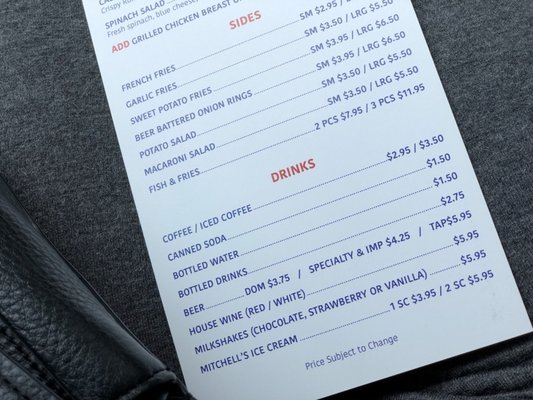 Crispy
SPINACH SALAD
Fresh spinach, blue cheese
ADD GRILLED CHICKEN BREAST
SIDES
FRENCH FRIES SM $2.95 /
GARLIC FRIES SM $3.50 / LRG $5.50
SWEET POTATO FRIES SM $3.95 / LRG $6.50
BEER BATTERED ONION RINGS SM $3.95 / LRG $6.50
POTATO SALAD SM $3.50 / LRG $5.50
MACARONI SALAD SM $3.50 / LRG $5.50
FISH & FRIES 2 PCS $7.95 / 3 PCS $11.95
DRINKS
COFFEE / ICED COFFEE $2.95 / $3.50
CANNED SODA $1.50
BOTTLED WATER $1.50
BOTTLED DRINKS $2.75
BEER DOM $3.75 / SPECIALTY & IMP $4.25 / TAP$5.95
HOUSE WINE (RED / WHITE) $5.95
MILKSHAKES (CHOCOLATE, STRAWBERRY OR VANILLA) $5.95
MITCHELL'S ICE CREAM 1 SC $3.95 / 2 SC $5.95
Price Subject to Change